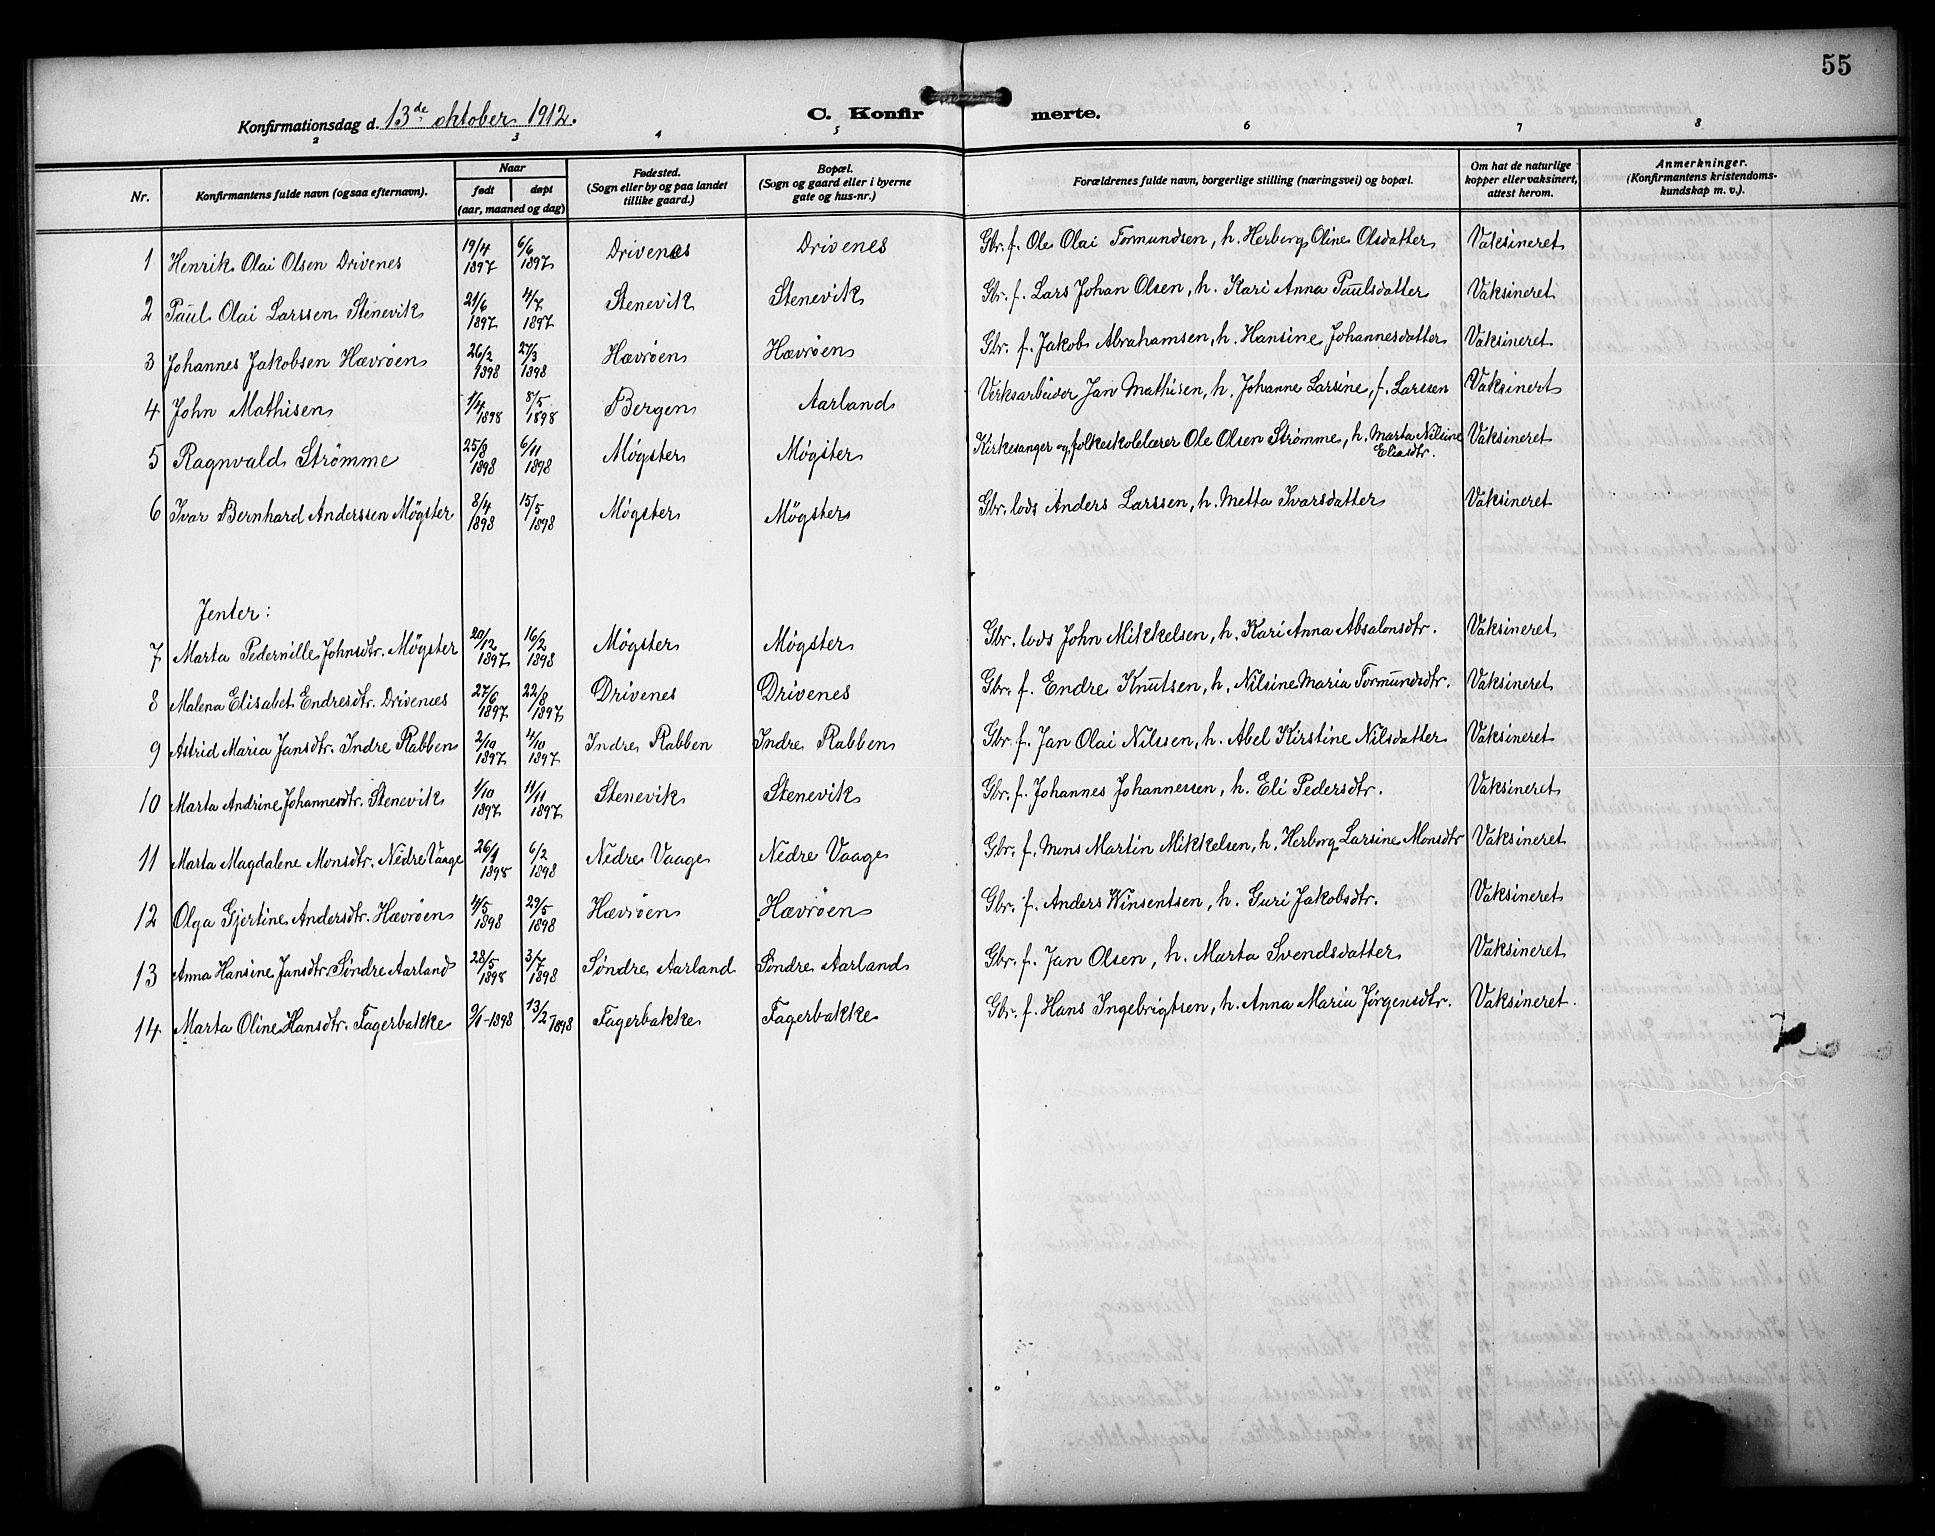 55
Konfirmationsdag d. 13de oktober 1912.
C. Konfirmerte.
2 3 4 5 6 7 8
Nr.
Konfirmantens fulde navn (ogsaa efternavn).
Naar
født
døpt
(aar, maaned og dag)
Fødested.
(Sogn eller by og paa landet
tillike gaard.)
Bopæl.
(Sogn og gaard eller i byerne
gate og hus-nr.)
Forældrenes fulde navn, borgerlige stilling (næringsvei) og bopæl.
Om hat de naturlige
kopper eller vaksinert,
attest herom.
Anmerkninger.
(Konfirmantens kristendoms-
kundskap m. v.).
1 Henrik Olai Olsen Drivenes 19/4 1897 6/6 1897 Drivenes Drivenes Gbr. f. Ole Olai Tormundsen, h. Herborg Oline Olsdatter Vaksineret
2 Paul Olai Larssen Stenevik 21/6 1897 4/7 1897 Stenevik Stenevik Gbr. f. Lars Johan Olsen, h. Kari Anna Paulsdatter Vaksineret
3 Johannes Jakobsen Hævrøen 26/2 1898 27/3 1898 Hævrøen Hævrøen Gbr. f. Jakob Abrahamsen, h. Hansine Johannesdatter Vaksineret
4 John Mathisen 1/4 1898 8/5 1898 Bergen Aarland Verksarbeider Jan Mathisen, h. Johanne Larsine, f. Larssen Vaksinert
5 Ragnvald Strømme 25/8 1898 6/11 1898 Møgster Møgster Kirkesanger og folkeskolelærer Ole Olsen Strømme, h. Marta Nilsine
Eliasdtr.
Vaksineret
6 Ivar Bernhard Anderssen Møgster 8/4 1898 15/5 1898 Møgster Møgster Gbr. lods Anders Larssen, h. Metta Ivarsdatter Vaksineret
Jenter:
7 Marta Pedernille Johnsdtr. Møgster 20/12 1897 16/2 1898 Møgster Møgster Gbr. lods John Mikkelsen, h. Kari Anna Absalonsdtr. Vaksineret
8 Malena Elisabet Endresdtr. Drivenes 27/6 1897 22/8 1897 Drivenes Drivenes Gbr. f. Endre Knutsen, h. Nilsine Maria Tormundsdtr. Vaksineret
9 Astrid Maria Jansdtr. Indre Rabben 2/10 1897 4/10 1897 Indre Rabben Indre Rabben Gbr. f. Jan Olai Nilssen, h. Abel Kirstine Nilsdatter Vaksineret
10 Marta Andrine Johannesdtr. Stenevik 1/10 1897 11/11 1897 Stenevik Stenevik Gbr. f. Johannes Johannessen, h. Eli Pedersdtr. Vaksineret
11 Marta Magdalene Monsdtr. Nedre Vaage 26/1 1898 6/2 1898 Nedre Vaage Nedre Vaage Gbr. f. Mons Martin Mikkelsen, h. Herborg Larsine Monsdtr Vaksineret
12 Olga Gjertine Andersdtr. Hævrøen 4/5 1898 29/5 1898 Hævrøen Hævrøen Gbr. f. Anders Winsentsen, h. Guri Jakobsdtr. Vaksineret
13 Anna Hansine Jansdtr. Søndre Aarland 28/5 1898 3/7 1898 Søndre Aarland Søndre Aarland Gbr. f. Jan Olsen, h. Marta Svendsdatter Vaksineret
14 Marta Oline Hansdtr. Fagerbakke 9/1-1898 13/2-1898 Fagerbakke Fagerbakke Gbr. f. Hans Ingebrigtsen, h. Anna Maria Jørgensdtr. Vaksineret.